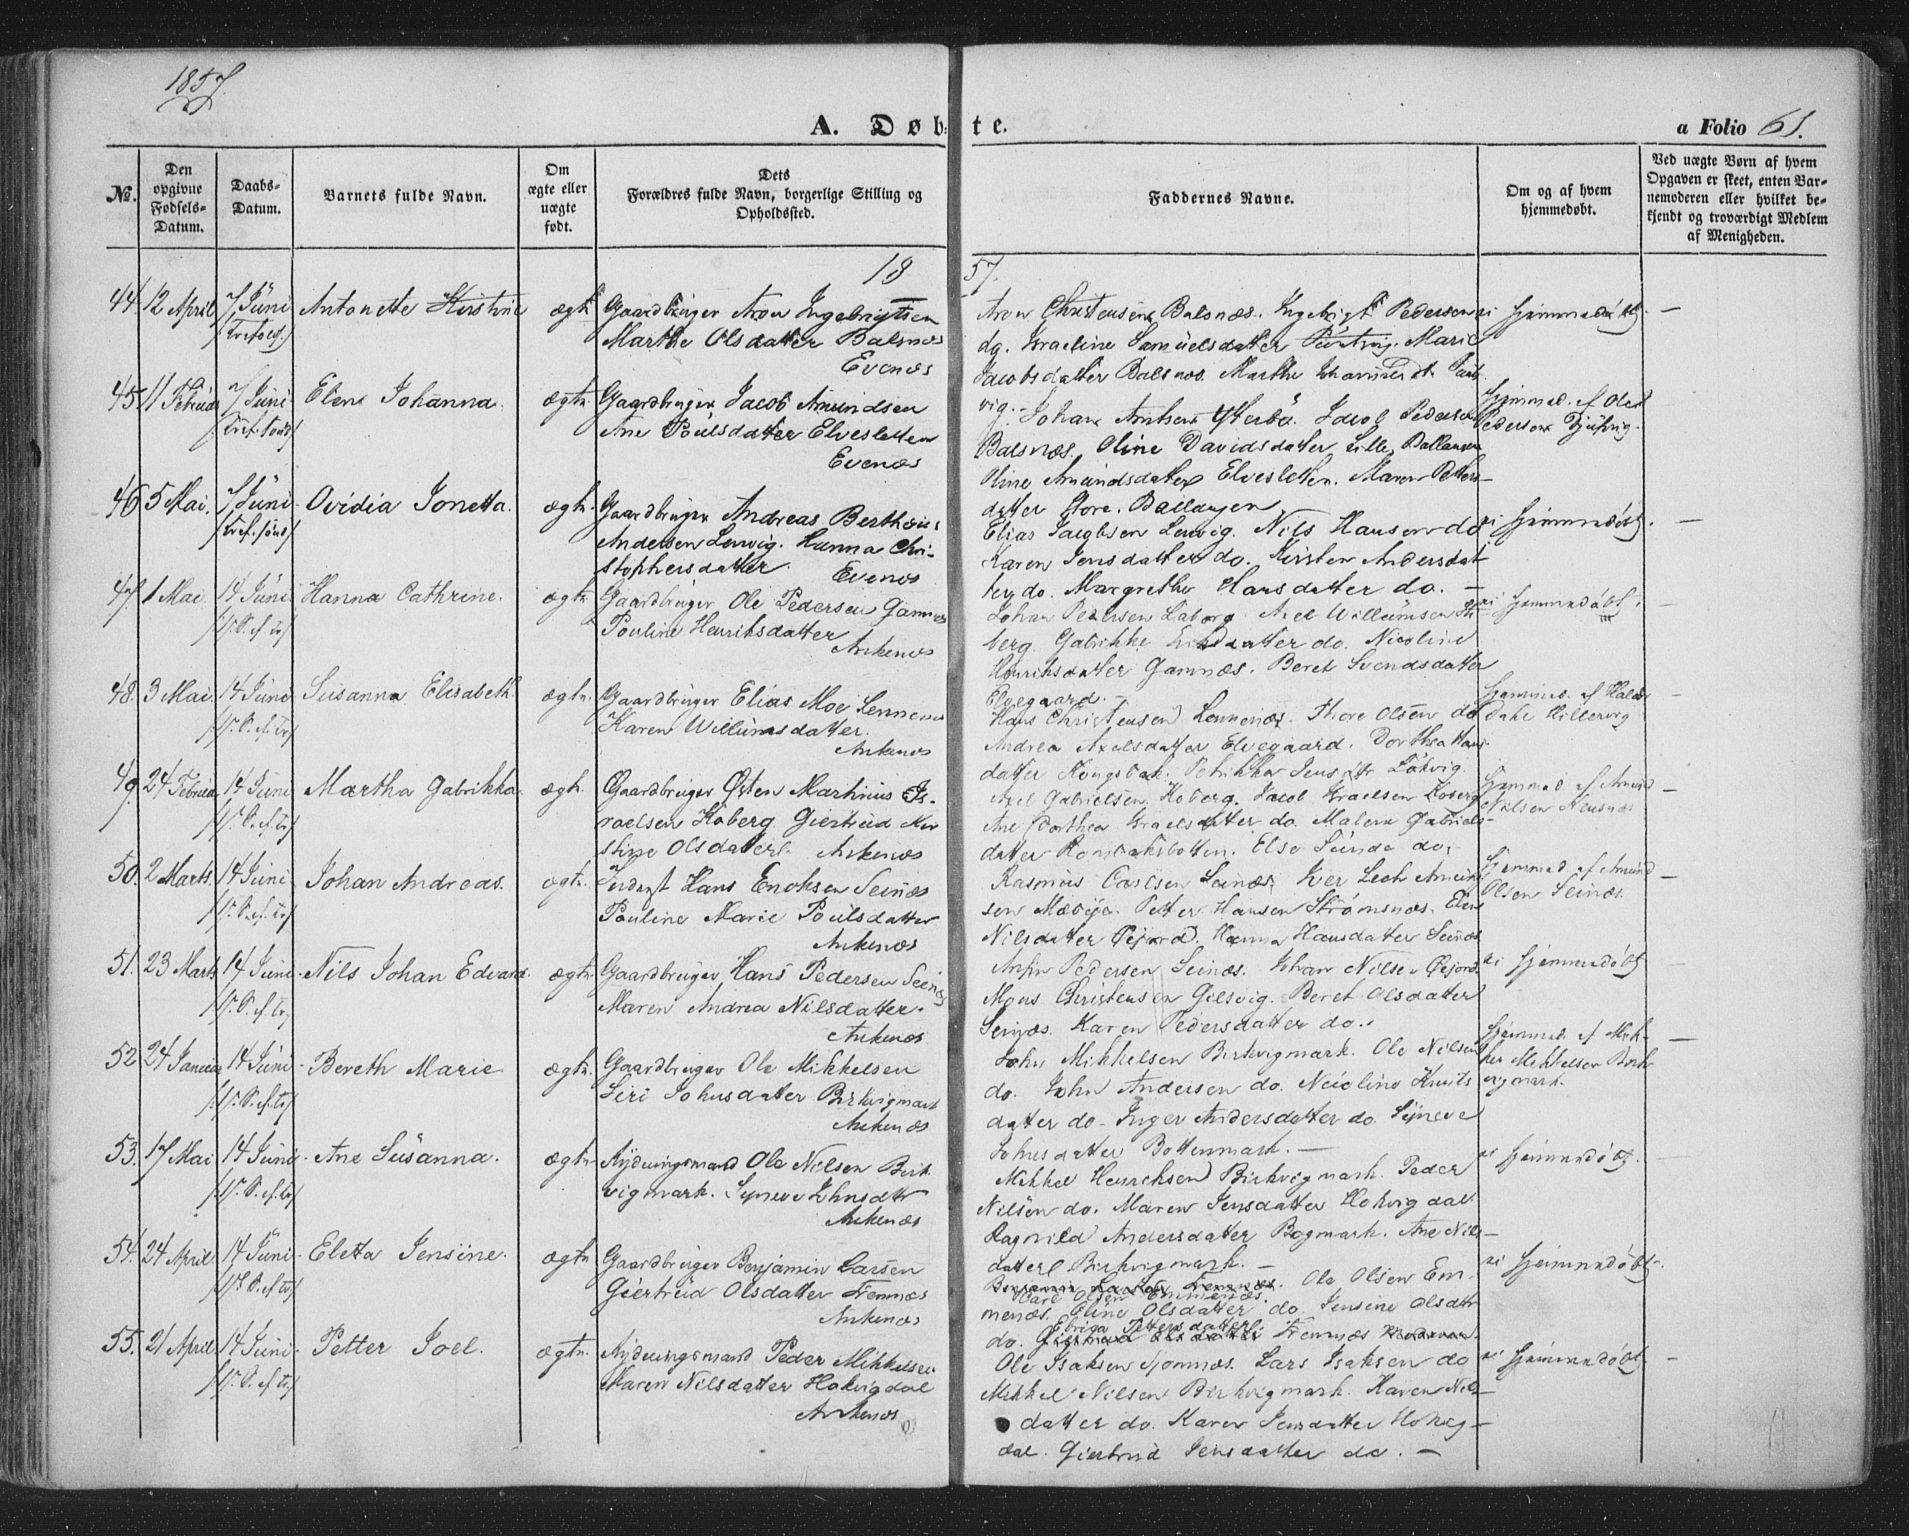 1857.
A. Døbte.
a Folio 61.
No.
Den opgivne Fødsels-Datum.
Daabs-Datum.
Barnets fulde Navn.
Om ægte eller uægte født.
Dets Forældres fulde Navn, borgerlige Stilling og Opholdssted.
Faddernes Navne.
Om og af hvem hjemmedøbt.
Ved uægte Børn af hvem Opgaven er skeet, enten Barnemoderen eller hvilket bekjendt og troværdigt Medlem af Menigheden.
1857.
44. 12 April 7 Juni Antonette Kirstine ægte Gaardbruger Aron Ingebrigtsen
Marthe Olsdatter Balsnæs
Evenæs
Aron Christensen Balsnæs. Ingebrigt Pedersen
dg. Israeline Samuelsdatter Marie
Jacobsdatter Balsnæs. Marthe
ei hjemmedøbt. —
45. 11 Februar 7 Juni Elen Johanna. ægte Gaardbruger Jacob Amundsen
Ane Poulsdatter Elvesletten
Evenæs
vig. Johan Antsen Ysterbø. Jacob Pedersen
Balsnæs. Oline Davidsdatter Lille Ballangen
Oline Amundsdatter Elvesletten. Maren Petters-
datter Store Ballangen
hjemmed. af Ole
Pedersen
46. 5 Mai. 7 Juni Ovidia Jonetta. ægte. Gaardbruger Andreas Bertheus
Andersen Lenvig. Hanna Chri-
stophersdatter. Evenæs
Elias Jacobsen Lenvig. Nils Hansen do
Karen Jensdatter do. Kirsten Andersdat
ter do. Margrethe Hansdatter do. —
ei hjemmedøbt. —
47. 1 Mai. 14 Juni Hanna Cathrine. ægte Gaardbruger Ole Pedersen Gamnæs
Pouline Henriksdatter
Ankenæs
Johan Pedersen Laberg. Axel Willumsen
berg. Gabrikke datter do. Nicoline
Henriksdatter Gamnæs. Beret Svendsdatter
Elvegaard. —
ei hjemmedøbt. —
48. 3 Mai. 14 Juni Susanna Elisabeth ægte. Gaardbruger Elias Moe Lennenæs
Karen Willumsdatter.
Ankenæs
Hans Christensen Lennenæs. Thore Olsen do
Andrea Axelsdatter Elvegaard. Dorthea Hans-
datter Kongsbak. Petrikka Jensdtr
hjemmed. af
—
49. 24 Februar 14 Juni Martha Gabrikka. ægte. Gaardbruger Østen Martinus Is-
raelsen Hoberg. Giertrud Kir
stine Olsdatter. Ankenæs
Axel Gabrielsen. Hoberg. Jacob Israelsen
Ane Dorthea Israelsdatter do. Malene Gabriels-
datter Rombaksbotten. Else Sunde do.
hjemmed. af Amund
Nilsen —
50. 2 Marts. 14 Juni Johan Andreas. ægte. Inderst Hans Enoksen Seinæs
Pouline Marie Poulsdatter
Ankenæs
Rasmus Carlsen Seinæs. Iver Lech Amund
sen Mæbye. Petter Hansen Strømsnæs. Elen
Nilsdatter Øejord. Hanna Hansdatter Seinæs
hjemmed af Amund
Olsen Seinæs. —
51. 23 Marts 14 Juni Nils Johan Edvard. ægte Gaardbruger Hans Pedersen Seinæs
Maren Andrea Nilsdatter.
Ankenæs
Anfin Pedersen Seinæs. Johan Nilsen Øejord.
Mons Christensen Gilsvig. Beret Olsdatter
Seinæs. Karen Pedersdatter do.
ei hjemmedøbt —
52. 24 Januar 14 Juni Bereth Marie ægte. Gaardbruger Ole Mikkelsen
Siri Johnsdatter Birkvigmark
Ankenæs
John Mikkelsen Birkvigmark. Ole Nilsen
do. John Andersen do. Nicoline Knuts
datter do. Inger Andersdatter do. Syneve
Johnsdatter Bottenmark. —
hjemmed. af Mik-
kel Mikkelsen Birk
vigmark.
53. 17 Mai 14 Juni Ane Susanna. ægte Rydningsmand Ole Nilsen Birk
vigmark. Syneve Johnsdtr
Ankenæs
Mikkel Henriksen Birkvigmark. Peder
Nilsen do. Maren Jensdatter Hokvigdal
Ragnild Andersdatter Bogmark. Ane Nils-
datter Birkvigmark. —
ei hjemmedøbt. —
54. 24 April 14 Juni Eletta Jensine. ægte Gaardbruger Benjamin Larsen
Giertrud Olsdatter Femnæs
Ankenæs
Benjamin Larsen Femnæs. Ole Olsen Em-
Carl Olsen Emmenæs.
menæs. Eline Olsdatter do. Jensine Olsdtr
do. Giertrud Olsdatter Femnæs
ei hjemmedøbt. —
55. 21 April 14 Juni Petter Joel. ægte Rydningsmand Peder Mikkelsen
Maren Nilsdatter Hokvigdal
Ankenæs
Ole Isaksen Sjomnæs. Lars Isaksen do
Mikkel Nilsen Birkvigmark. Karen Nils-
datter do. Karen Jensdatter Hokvig-
dal. Giertrud Jensdatter do. —
ei hjemmedøbt —